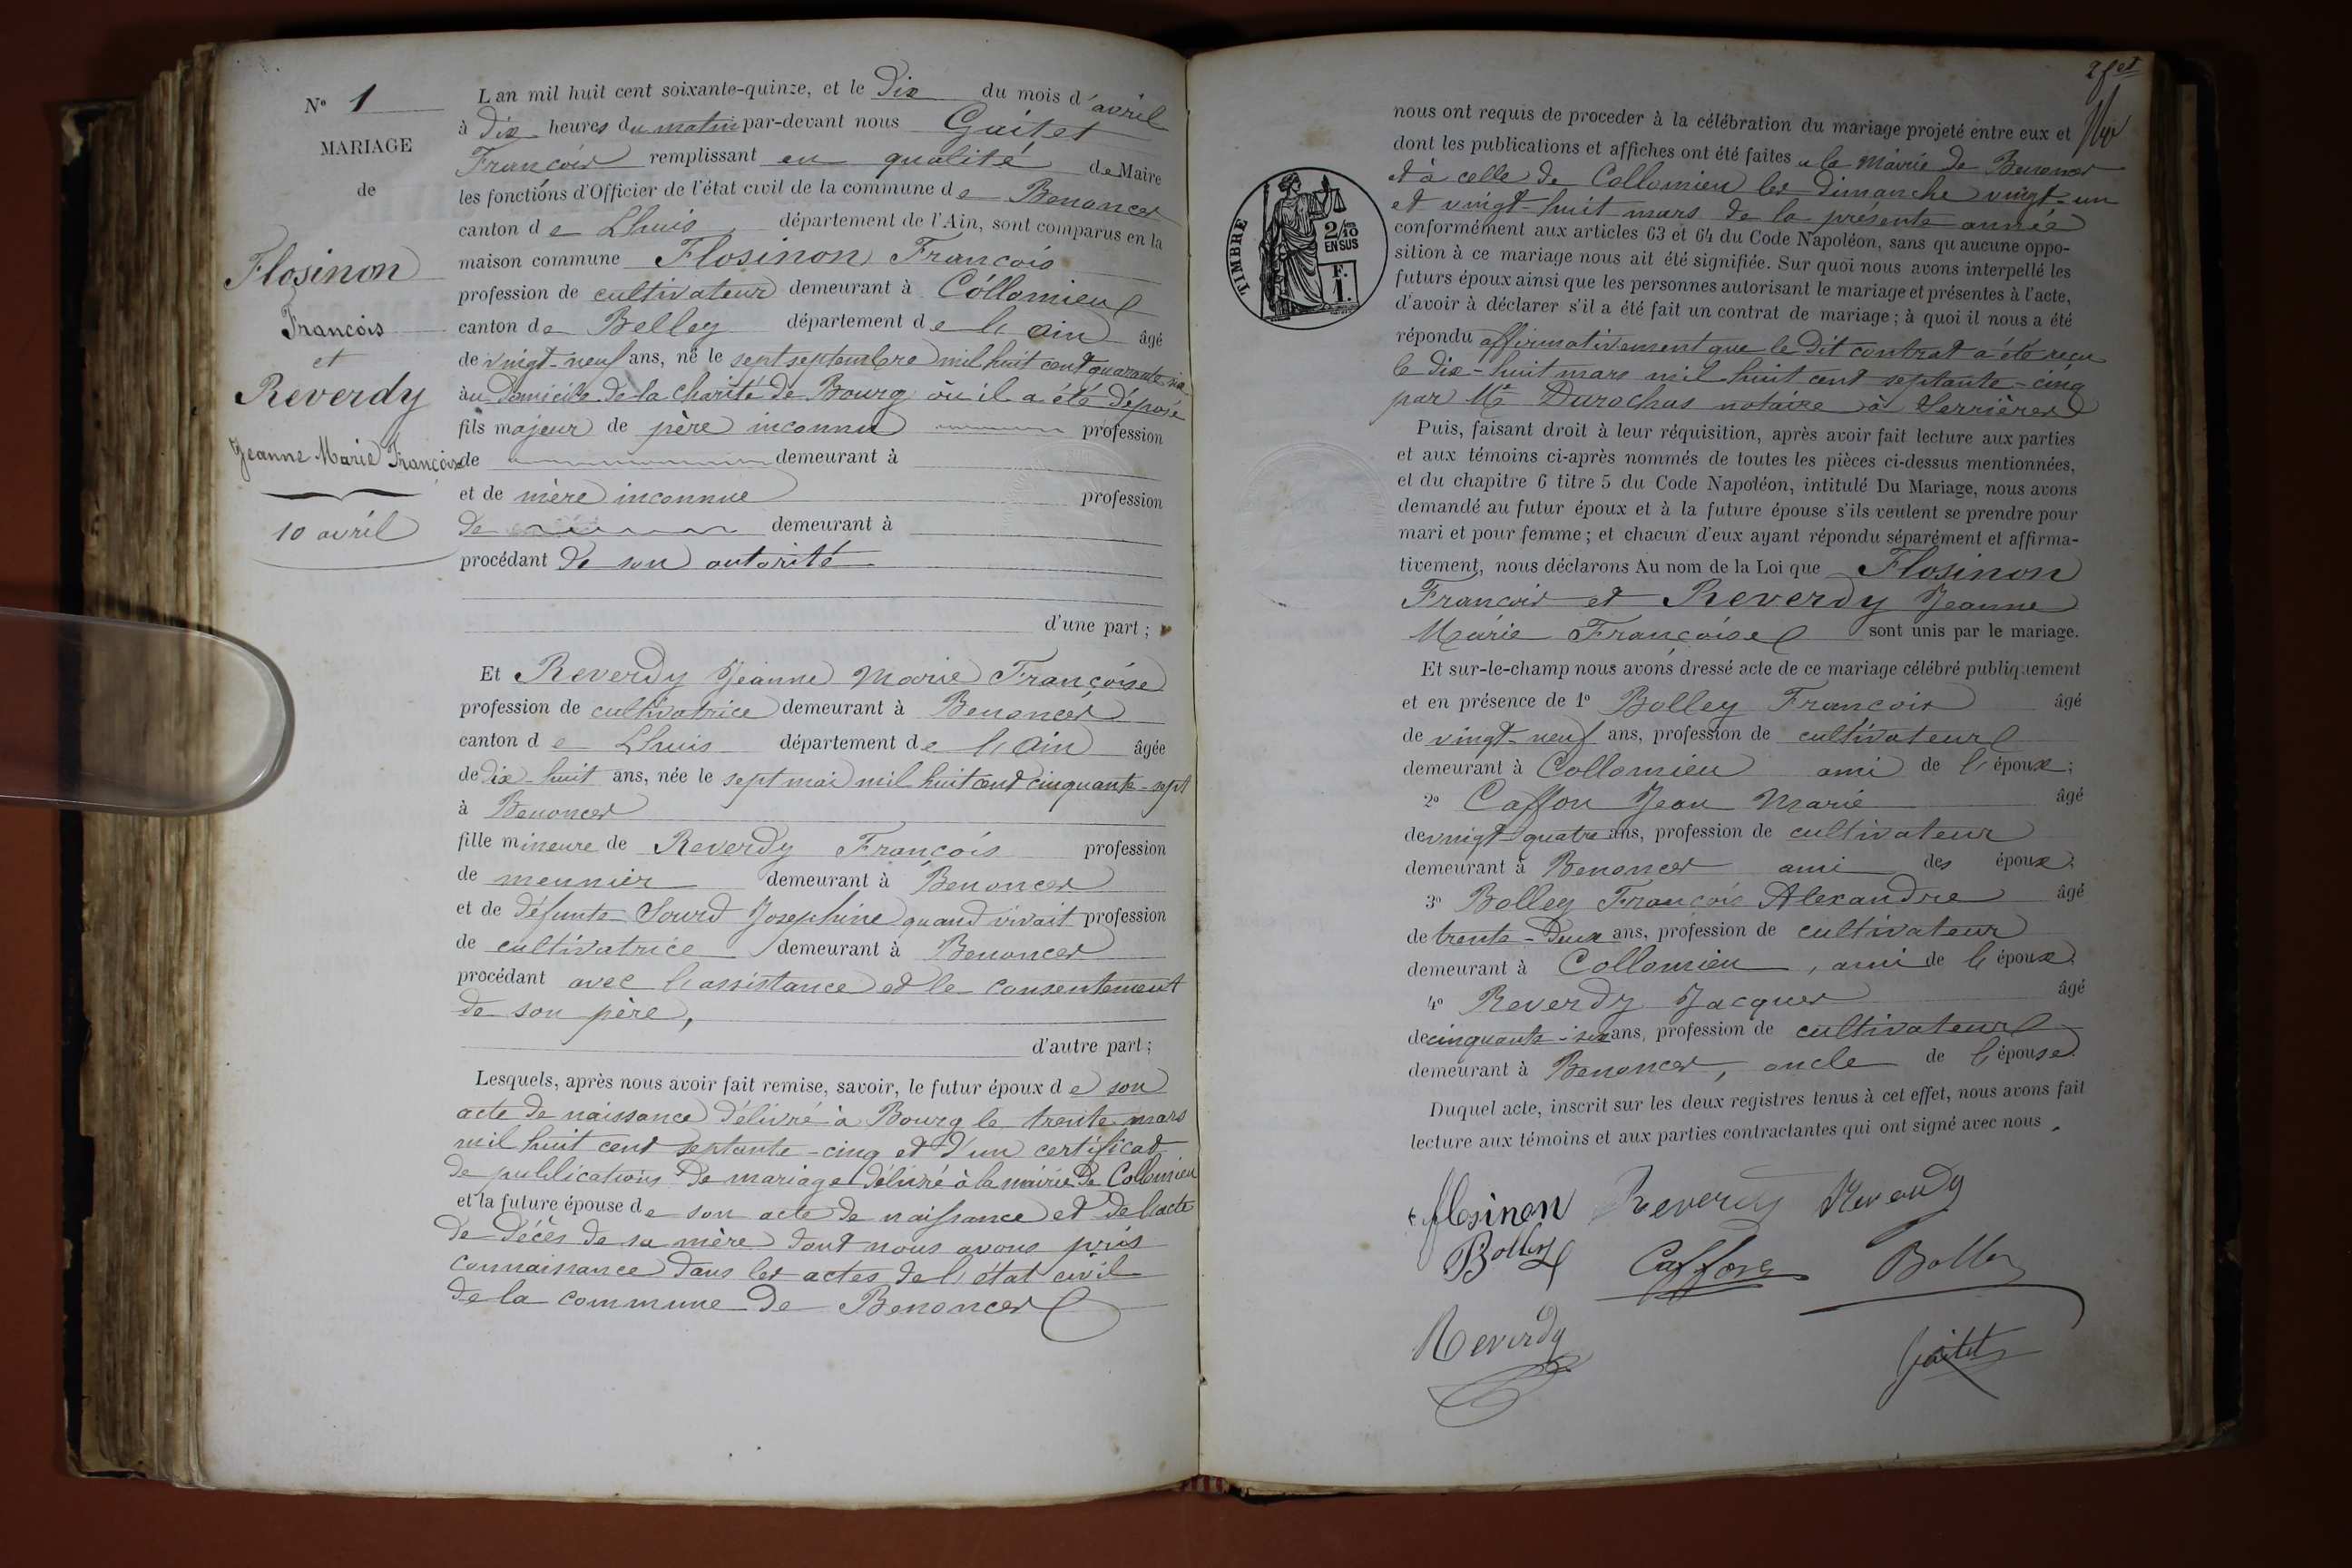 N° 1
MARIAGE
de
Flosinon
François
et
Reverdy
Jeanne Marie Françoise
10 avril
L an mil huit cent soixante-quinze, et le Dix du mois d'avril
à Dix heures du matin par-devant nous Guitet
François remplissant en qualité de Maire
les fonctions d'Officier de l'état civil de la commune de Benonces
canton de Lhuis département de l'Ain, sont comparus en la
maison commune Flosinon François
profession de cultivateur demeurant à Collomieu
canton de Belley département de l'ain âgé
de vingt-neuf ans, né le sept septembre mil huit cent quarante-six
au Domicile de la charité de Bourg où il a été déposé
fils majeur de père inconnu profession
de demeurant à
et de mère inconnue profession
de demeurant à
procédant de son autorité
d'une part ;
Et Reverdy Jeanne Marie Françoise
profession de cultivatrice demeurant à Benonces
canton de Lhuis département de l'Ain âgée
de dix-huit ans, née le sept mai mil huit cent cinquante-sept
à Benonces
fille mineure de Reverdy François profession
de meunier demeurant à Benonces
et de défunte Sourd Josephine quand vivait profession
de cultivatrice demeurant à Benonces
procédant avec l'assistance et le consentement
de son père,
d'autre part ;
Lesquels, après nous avoir fait remise, savoir, le futur époux de son
acte de naissance délivré à Bourg le trente mars
mil huit cent septante-cinq et d'un certificat
de publications de mariage délivré à la mairie de Collomieu
et la future épouse de son acte de naissance et de l'acte
de décès de sa mère dont nous avons pris
connaissance dans les actes de l'état civil
de la commune de Benonces
2 fet
nous ont requis de proceder à la célébration du mariage projeté entre eux et
dont les publications et affiches ont été faites a la Mairie de Benonces
et à celle de Collomieu les Dimanche vingt-un
et vingt-huit mars de la présente année
conformément aux articles 63 et 64 du Code Napoléon, sans qu aucune oppo-
sition à ce mariage nous ait été signifiée. Sur quoi nous avons interpellé les
futurs époux ainsi que les personnes autorisant le mariage et présentes à l'acte,
d'avoir à déclarer s'il a été fait un contrat de mariage ; à quoi il nous a été
répondu affirmativement que le dit contrat a été reçu
le dix-huit mars mil huit cent septante-cinq
par Me Durochas notaire à Serrières
TIMBRE
2/10
EN SUS
F.
1.
Puis, faisant droit à leur réquisition, après avoir fait lecture aux parties
et aux témoins ci-après nommés de toutes les pièces ci-dessus mentionnées,
et du chapitre 6 titre 5 du Code Napoléon, intitulé Du Mariage, nous avons
demandé au futur époux et à la future épouse s'ils veulent se prendre pour
mari et pour femme ; et chacun d'eux ayant répondu séparément et affirma-
tivement, nous déclarons Au nom de la Loi que Flosinon
François et Reverdy Jeanne
Marie Françoise sont unis par le mariage.
Et sur-le-champ nous avons dressé acte de ce mariage célébré publiquement
et en présence de 1° Bolley François âgé
de vingt-neuf ans, profession de cultivateur
demeurant à Collomieu ami de l'époux ;
2° Caffon Jean Marie âgé
de vingt-quatre ans, profession de cultivateur
demeurant à Benonces ami des époux ;
3° Bolley François Alexandre âgé
de trente-deux ans, profession de cultivateur
demeurant à Collomieu, ami de l'époux ;
4° Reverdy Jacques âgé
de cinquante-six ans, profession de cultivateur
demeurant à Benonces, oncle de l'épouse.
Duquel acte, inscrit sur les deux registres tenus à cet effet, nous avons fait
lecture aux témoins et aux parties contractantes qui ont signé avec nous.
flosinon Reverdy Reverdy
Bolley Caffon Bolley
Reverdy
Guitet